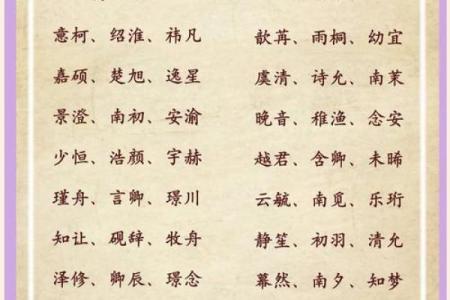 意柯、绍淮、祎凡
歆苒、雨桐、幼宜
嘉硕、楚旭、逸星
虞清、诗允、南茉
景澄、南初、安渝
晚音、稚渔、念安
少恒、浩颜、宇赫
越君、含卿、未晞
瑾舟、言卿、璟川
云毓、南觅、乐珩
知让、砚辞、牧舟
静笙、初羽、清允
泽修、卿辰、璟念
暮然、南夕、知梦